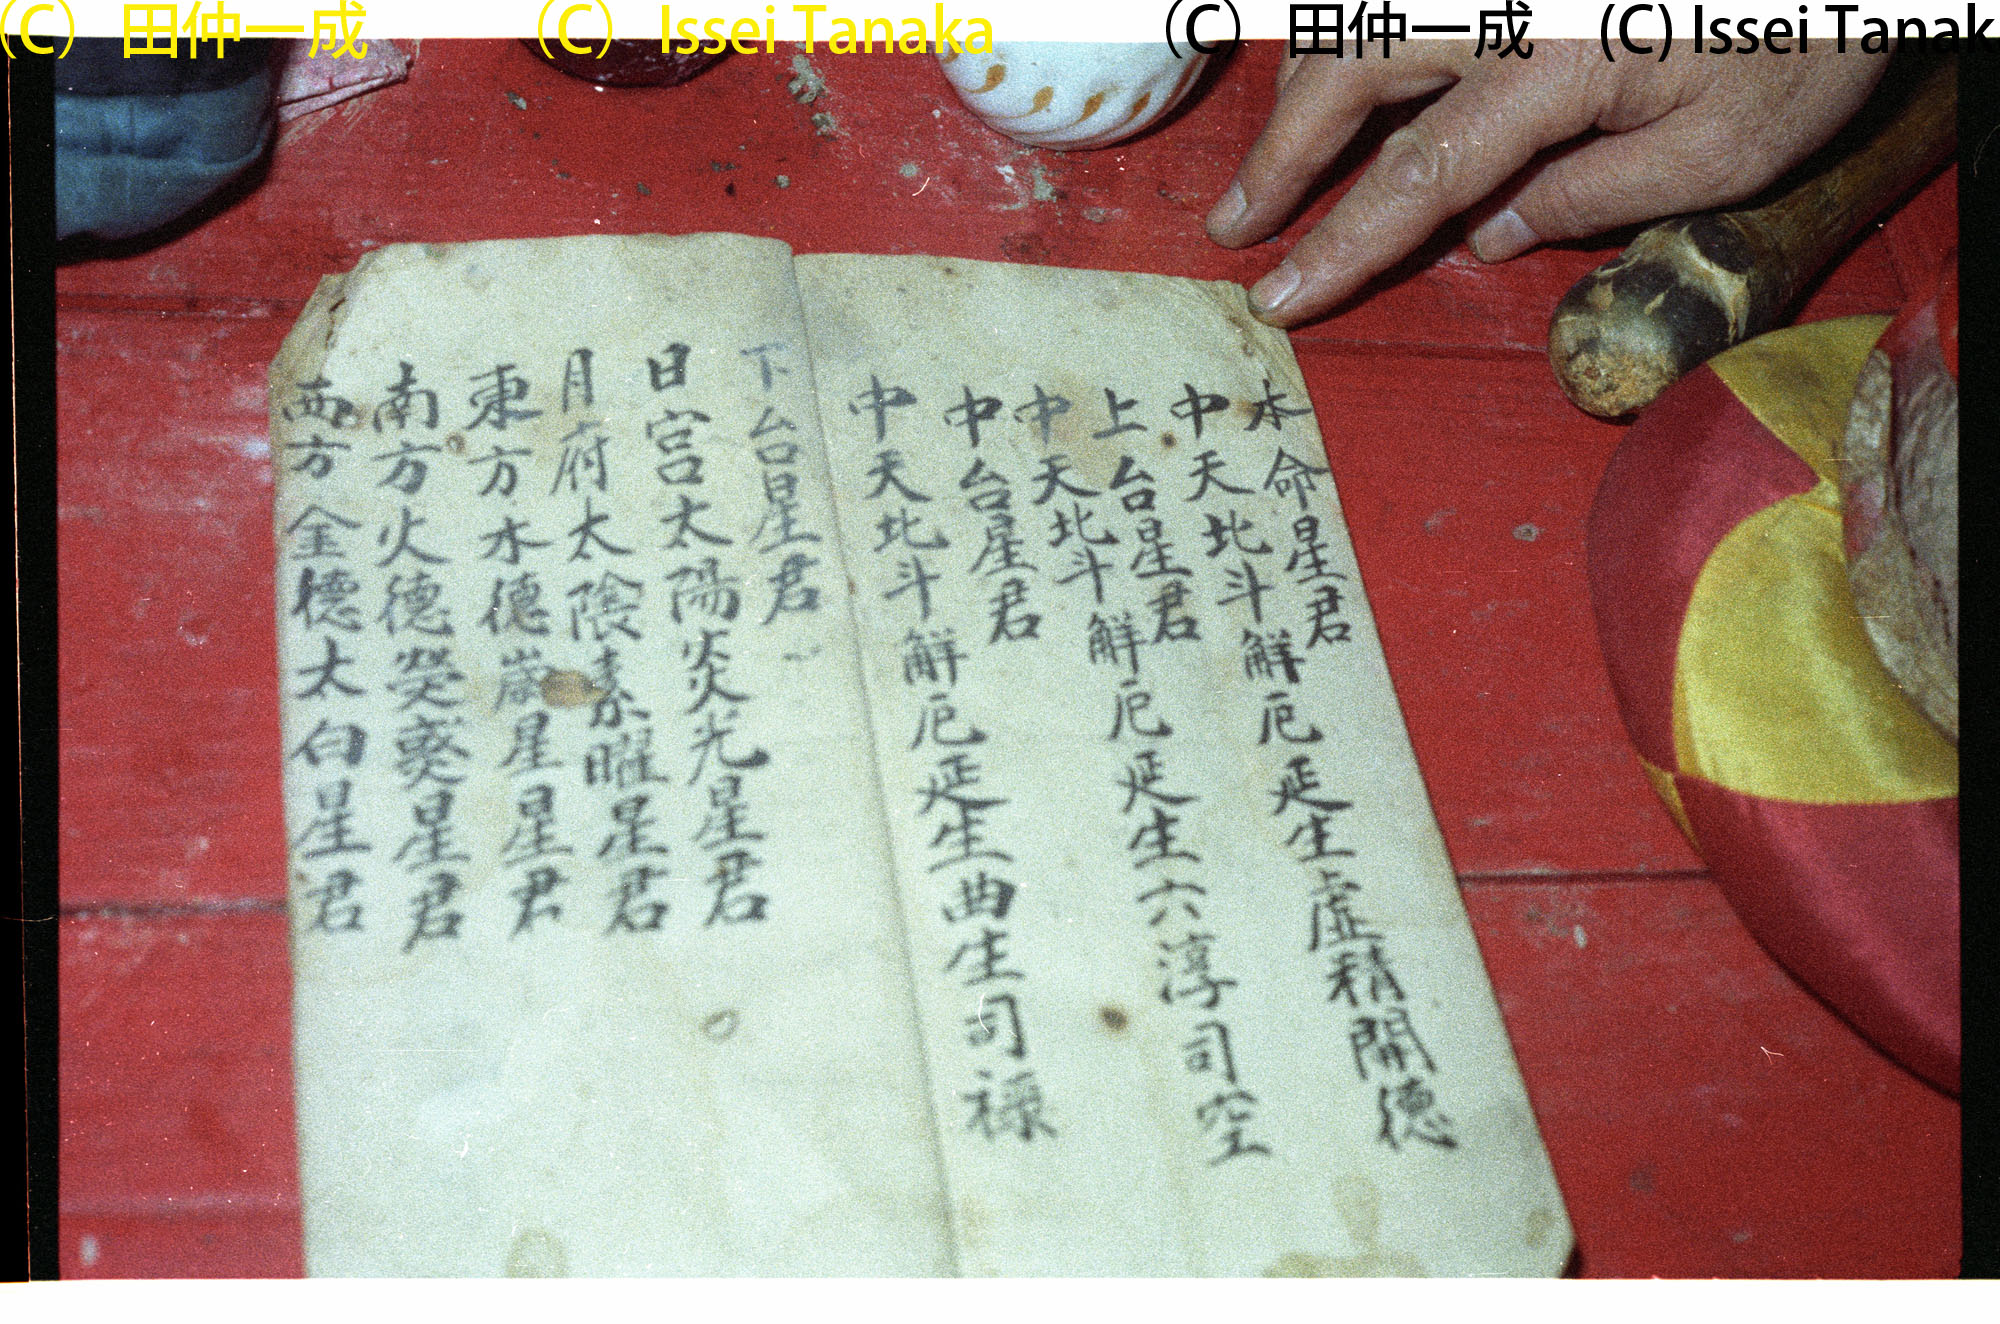 (C) 田仲一成 (C) Issei Tanaka (C) 田仲一成 (C) Issei Tanak
本命星君
中天北斗解厄延生虛精開德
上台星君
中天北斗解厄延生六淳司空
中台星君
中天北斗解厄延生曲生司祿
下台星君
日宮太陽炎光星君
月府太陰素曜星君
東方木德歲星星君
南方火德熒惑星君
西方金德太白星君